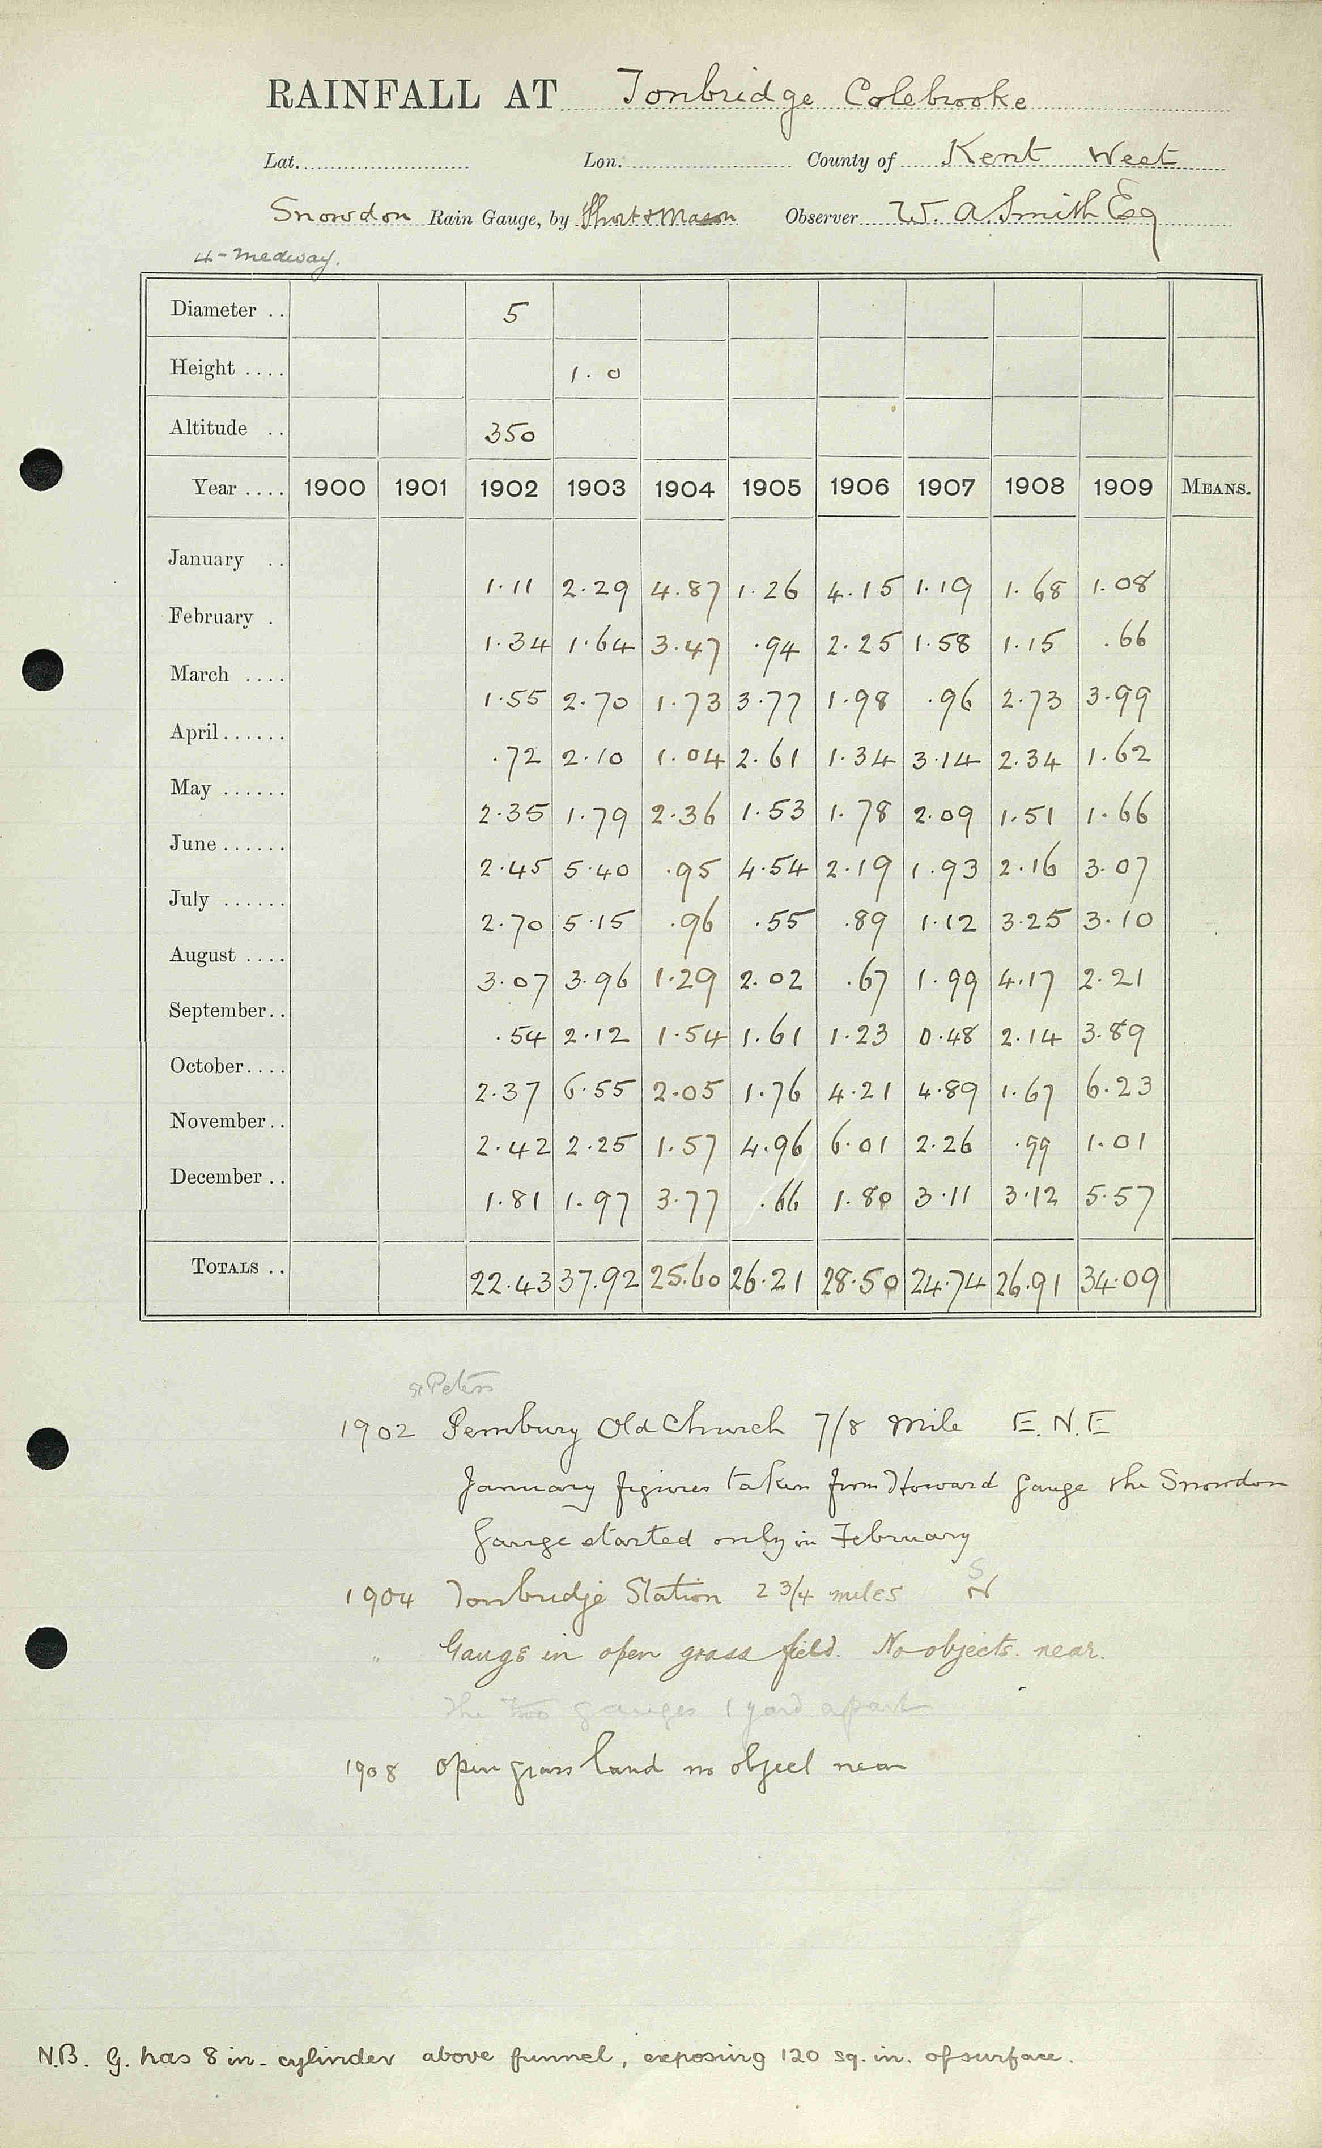 RAINFALL AT Tonbridge Colebrooke
Lat. Lon. County of Kent West
Snowdon Rain Gauge, by Short & Mason Observer W. A Smith Esq
4 - Medway.
Diameter .. 5
Height .... 1. 0
Altitude .. 350
Year .... 1900 1901 1902 1903 1904 1905 1906 1907 1908 1909 MEANS.
January .. 1.11 2.29 4.87 1.26 4.15 1.19 1.68 1.08
February . 1.34 1.64 3.47 .94 2.25 1.58 1.15 .66
March .... 1.55 2.70 1.73 3.77 1.98 .96 2.73 3.99
April...... .72 2.10 1.04 2.61 1.34 3.14 2.34 1.62
May ...... 2.35 1.79 2.36 1.53 1.78 2.09 1.51 1.66
June ...... 2.45 5.40 .95 4.54 2.19 1.93 2.16 3.07
July ...... 2.70 5.15 .96 .55 .89 1.12 3.25 3.10
August .... 3.07 3.96 1.29 2.02 .67 1.99 4.17 2.21
September.. .54 2.12 1.54 1.61 1.23 0.48 2.14 3.89
October.... 2.37 6.55 2.05 1.76 4.21 4.89 1.67 6.23
November.. 2.42 2.25 1.57 4.96 6.01 2.26 .99 1.01
December .. 1.81 1.97 3.77 .66 1.80 3.11 3.12 5.57
TOTALS .. 22.43 37.92 25.60 26.21 28.50 24.74 26.91 34.09
St Peters
1902 Pembury Old Church 7/8 Mile E. N. E
January figures taken from Howard Gauge the Snowdon
Gauge started only in February
1904 Tonbridge Station 2 3/4 miles N S
" Gauge in open grass field. No objects. near.
The two gauges 1 yard apart
1908 Open grass land no object near
N.B. G. has 8 in. cylinder above funnel, exposing 120 sq. in. of surface.